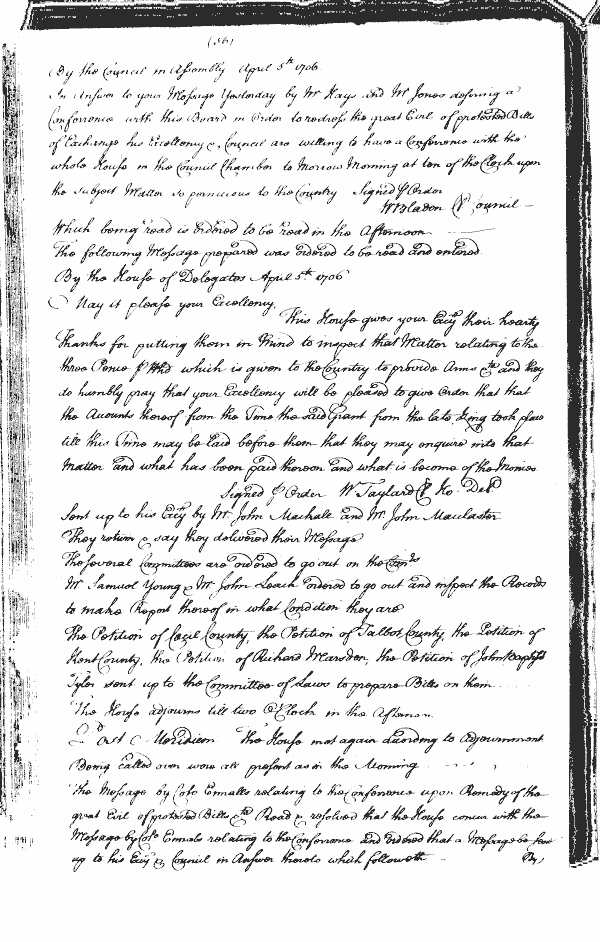 (56)
By the Council in Assembly April 5th 1706
In Answer to your Message Yesterday by Mr Hays and Mr Jones desiring a
Conference with this Board in Order to redress the great Evil of protested Bills
of Exchange his Excellency & Council are willing to have a Conference with the
whole House in the Council Chamber to Morrow Morning at ten of the Clock upon
the Subject Matter so pernicious to the Country Signed p Order
W Bladen Cl Council
Which being read is ordered to be read in the Afternoon
The following Message prepared was ordered to be read and entered
By the House of Delegates April 5th 1706
May it please your Excellency,
This House gives your Excy their hearty
Thanks for putting them in Mind to inspect that Matter relating to the
three Pence p hhd which is given to the Country to provide Arms &ca and they
do humbly pray that your Excellency will be pleased to give Order that that
the Accounts thereof from the Time the said Grant from the late King took place
till this Time may be laid before them that they may enquire into that
Matter and what has been paid thereon and what is become of the Monies
Signed p Order W Taylard Cl Ho. Del
Sent up to his Excy by Mr John Mackall and Mr John Macclaster
They return & say they delivered their Message
The several Committees are ordered to go out on the
Mr Samuel Young & Mr John Leach ordered to go out and inspect the Records
to make Report thereof in what Condition they are
The Petition of Cecil County, the Petition of Talbot County, the Petition of
Kent County, the Petition of Richard Marsden, the Petition of John Baptist
Tyler sent up to the Committee of Laws to prepare Bills on them
The House adjourns till two o'Clock in the Afternoon
Post Meridiem The House met again according to Adjournment
Being called over were all present as in the Morning
The Message by Colo Ennalls relating to the Conference upon Remedy of the
great Evil of protested Bills &ca Read & resolved that the House concur with the
Message by Colo Ennals relating to the Conference and ordered that a Message be sent
up to his Excy & Council in Answer thereto which followeth
By